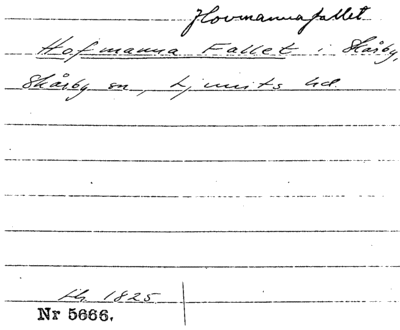 Hovmannafallet
Hofmanna Fallet i Skårby,
Skårby sn, Ljunits hd.
1825
Nr 5666.